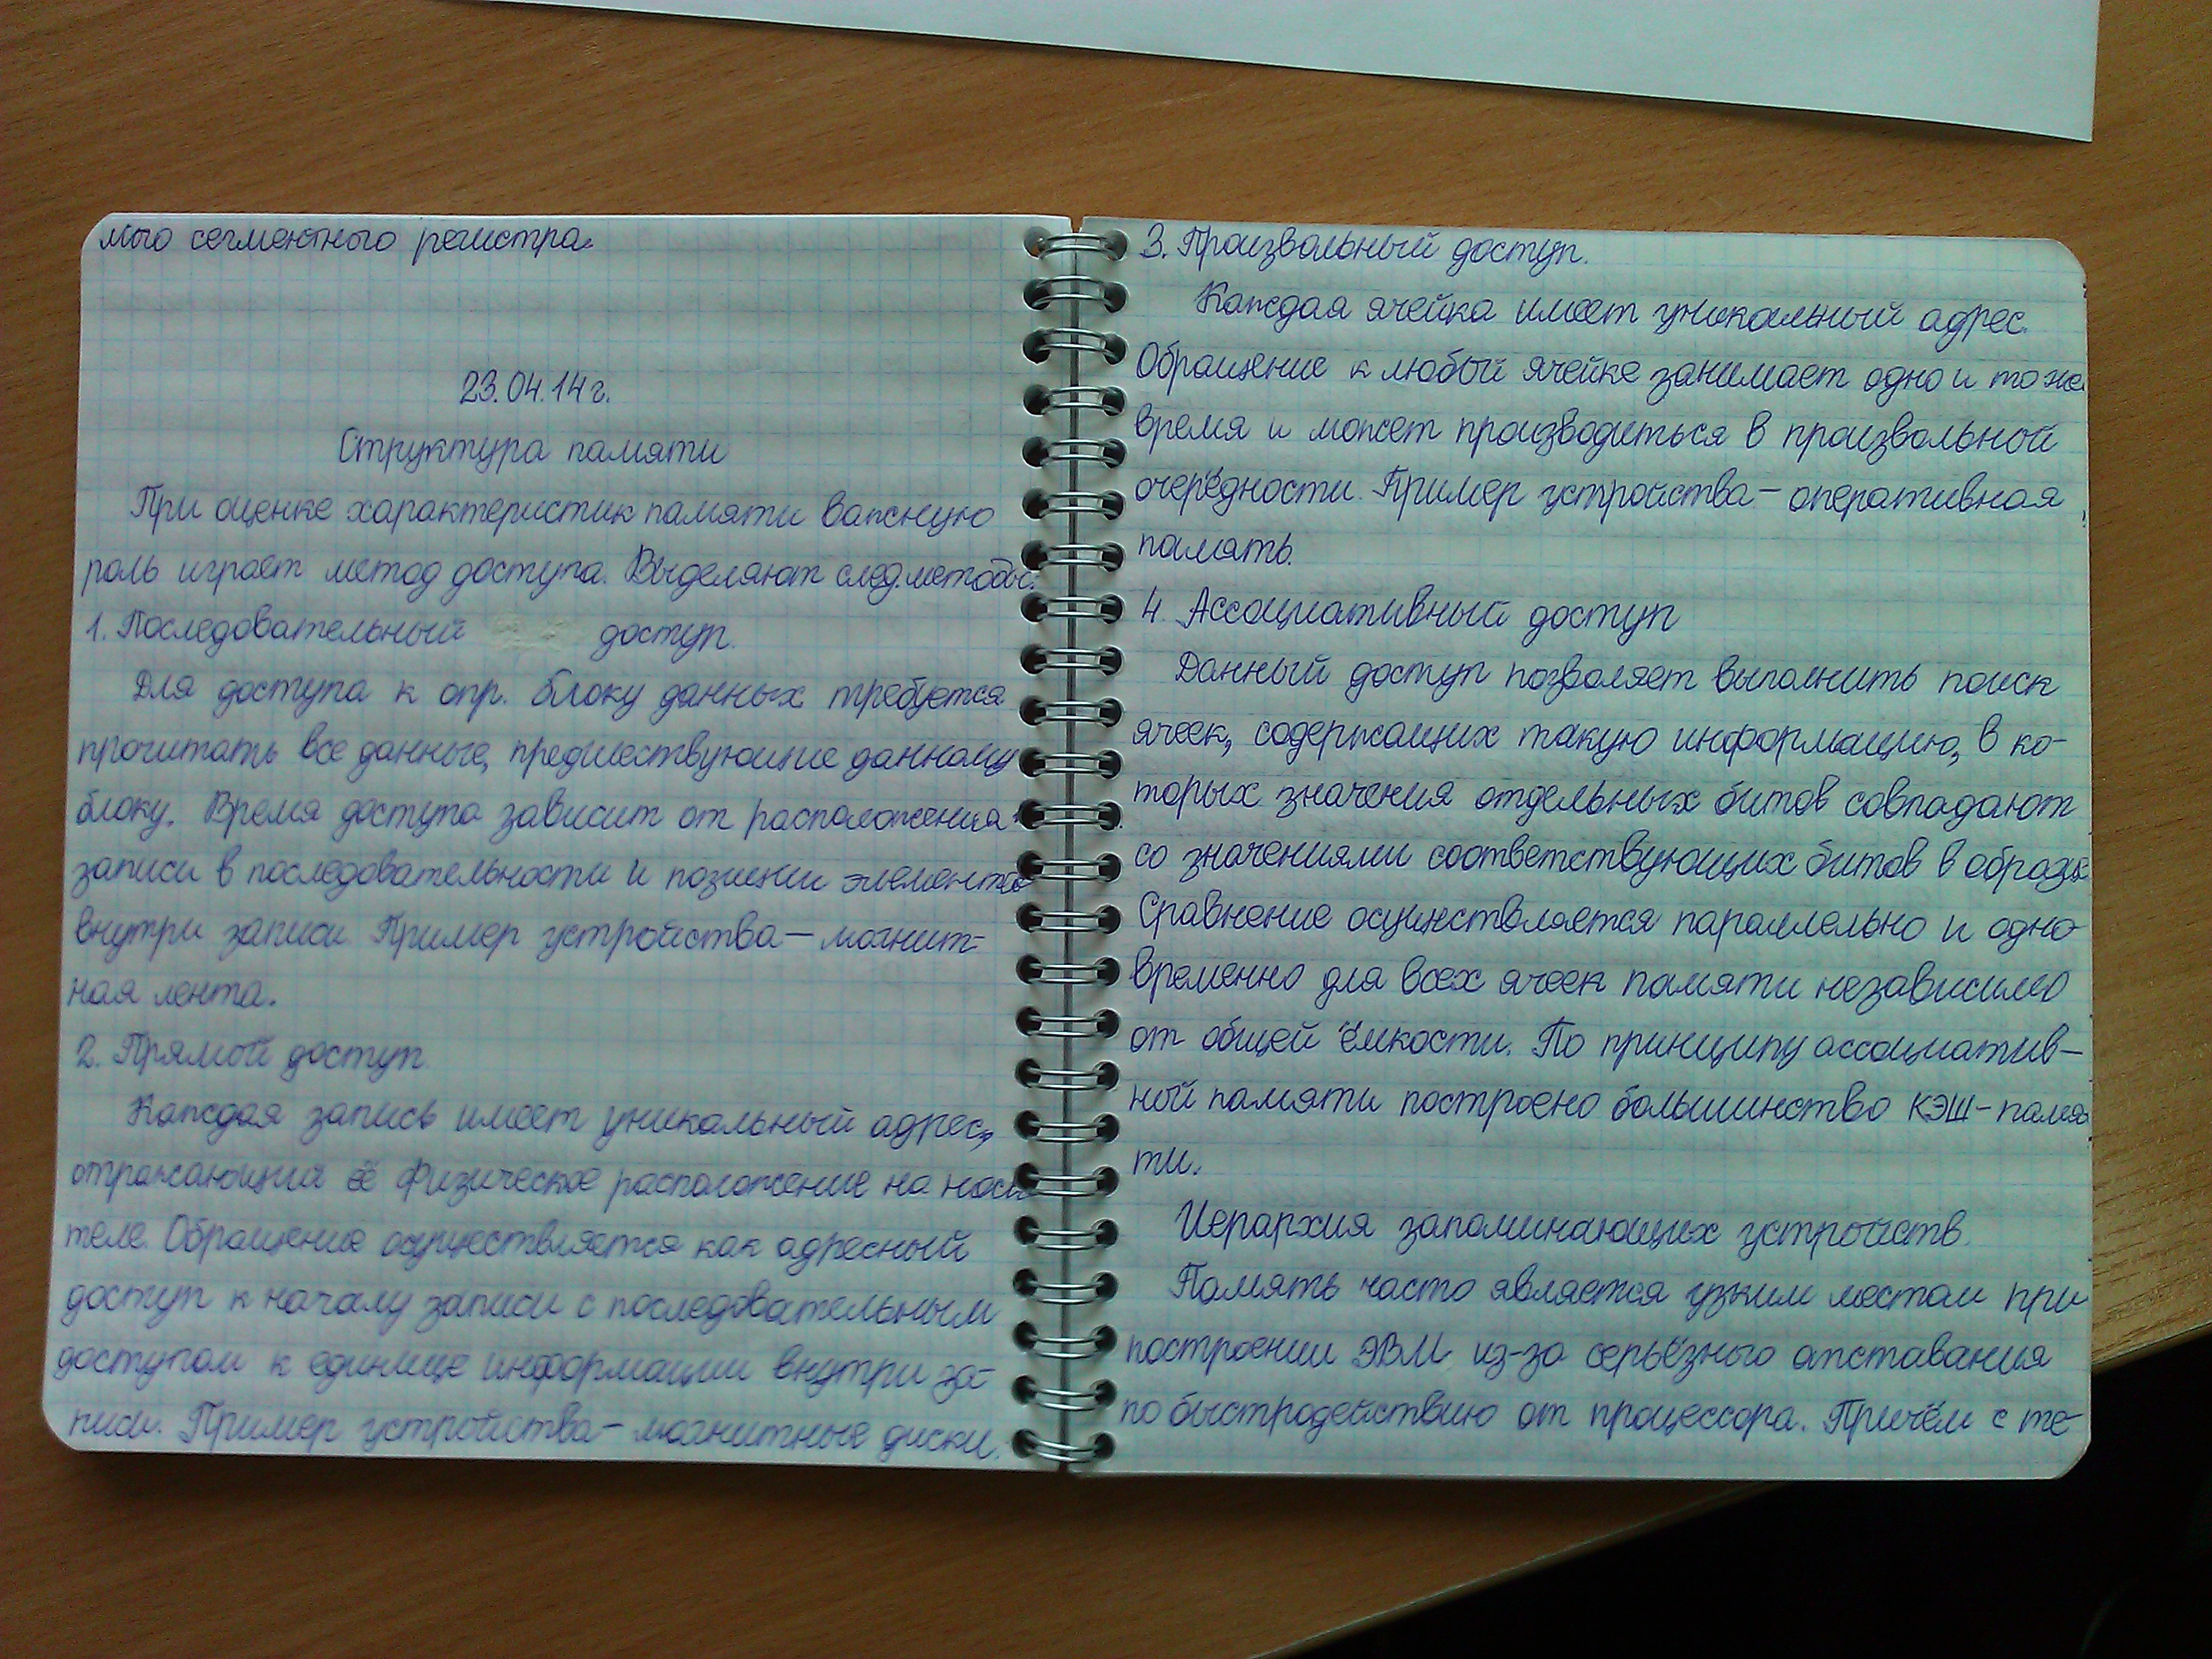 мого сегментного регистра.
23.04.14г.
Структура памяти
При оценке характеристик памяти важную
роль играет метод доступа. Выделяют след. методы:
1. Последовательный доступ.
Для доступа к опр. блоку данных требуется
прочитать все данные, предшествующие данному
блоку. Время доступа зависит от расположения
записи в последовательности и позиции элемента
внутри записи. Пример устройства – магнит-
ная лента.
2. Прямой доступ
Каждая запись имеет уникальный адрес,
отражающий её физическое расположение на носи
теле. Обращение осуществляется как адресный
доступ к началу записи с последовательным
доступом к единице информации внутри за-
писи. Пример устройства – магнитные диски.
3. Произвольный доступ.
Каждая ячейка имеет уникальный адрес.
Обращение к любый ячейке занимает одно и то же
время и может производиться в произвольной
очерёдности. Пример устройства – оперативная
память.
4. Ассоциативный доступ
Данный доступ позволяет выполнить поиск
ячеек, содержащих такую информацию, в ко-
торых значения отдельных битов совпадают
со значениями соответствующих битов в образце
Сравнение осуществляется параллельно и одно-
временно для всех ячеек памяти независимо
от общей ёмкости. По принципу ассоциатив-
ной памяти построено большинство КЭШ-памя
ти.
Иерархия запоминающих устройств.
Память часто является узким местом при
построении ЭВМ из-за серьёзного отставания
по быстродействию от процессора. Причём с те-